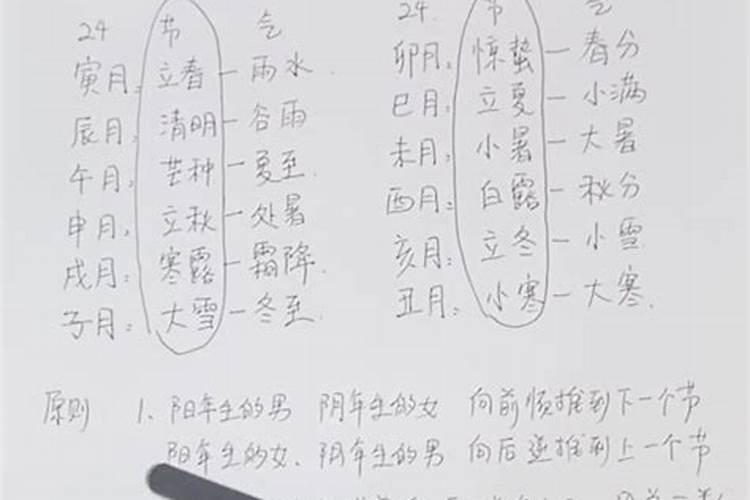 24 节 气
寅月: 立春 — 雨水
辰月: 清明 — 谷雨
午月: 芒种 — 夏至
申月: 立秋 — 处暑
戌月: 寒露 — 霜降
子月: 大雪 — 冬至
24 节 气
卯月: 惊蛰 — 春分
巳月: 立夏 — 小满
未月: 小暑 — 大暑
酉月: 白露 — 秋分
亥月: 立冬 — 小雪
丑月: 小寒 — 大寒
原则 1、阳年生的男 阴年生的女 向前顺推到下一个节
阳年生的女、阴年生的男 向后逆推到上一个节